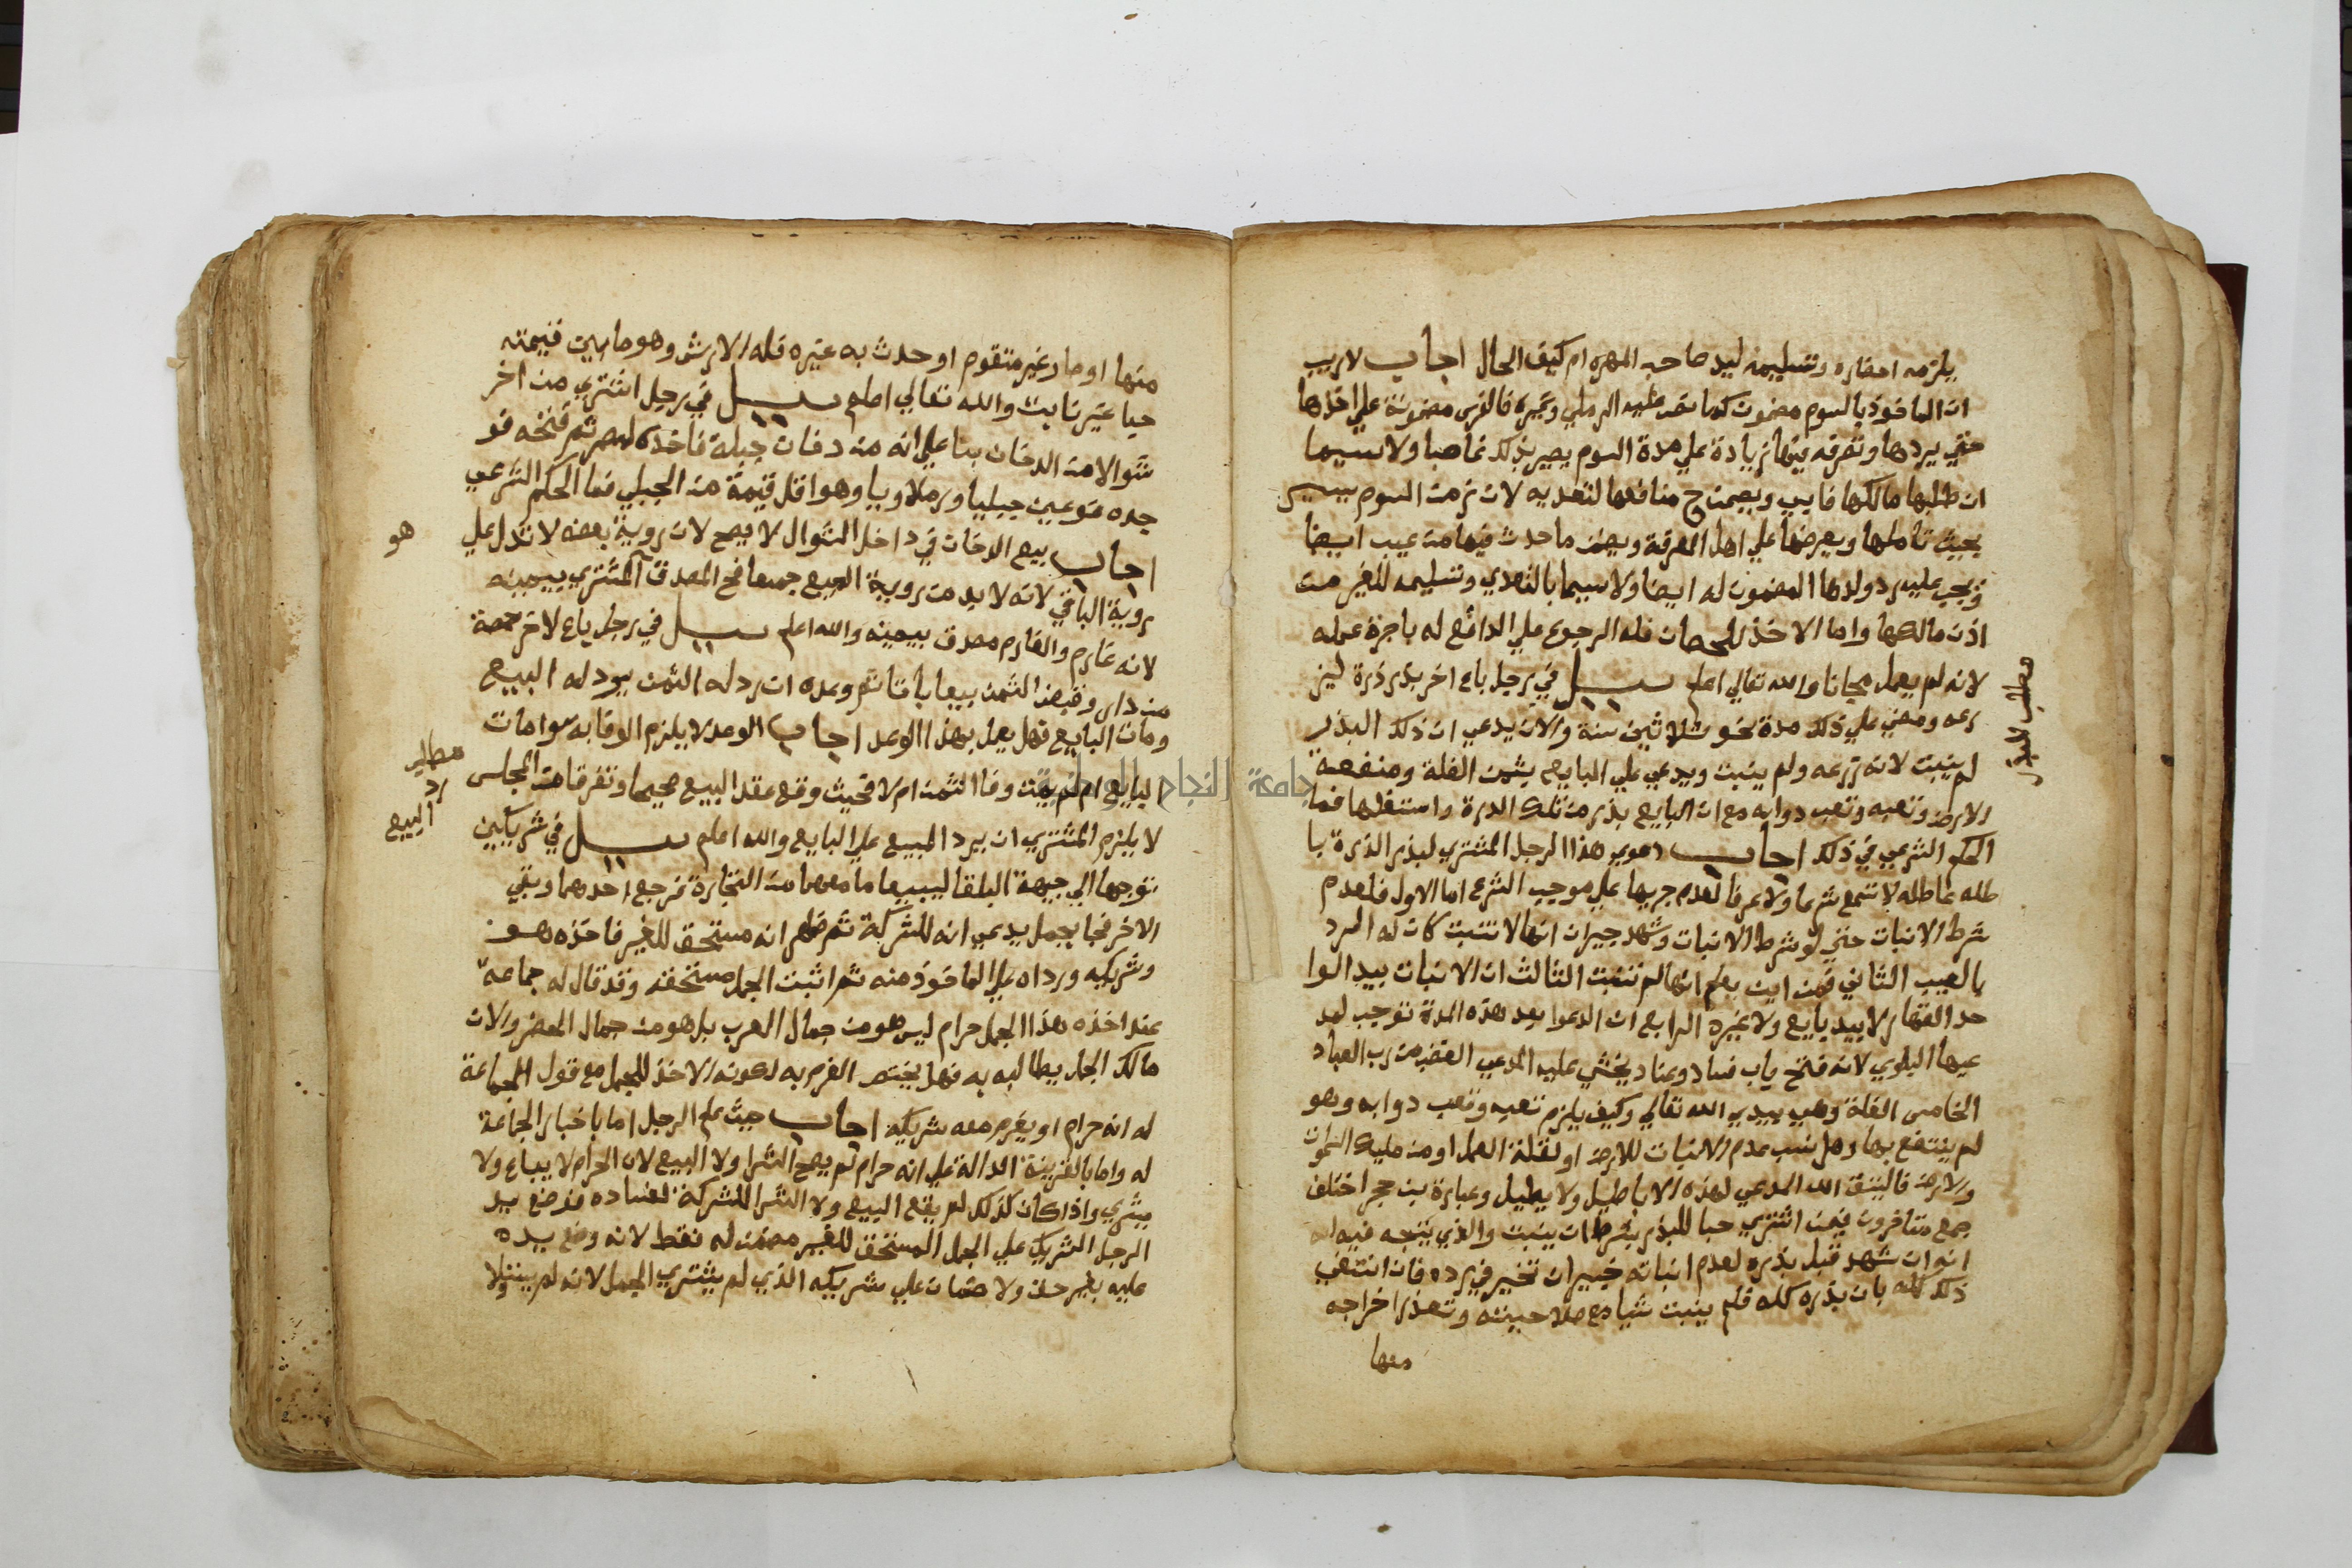 يلزمه احضاره وتسليمه ليد صاحب المهره ام كيف الحال اجاب لا ريب
ان الماخوذ بالسوم مضمون كما نص عليه الرملي وغيره فالفرس مضمونة علي اخذها
حتي يردها وتصرفه فيها زيادة علي مدة السوم يصير بذلك غاصبا ولا سيما
ان طلبها مالكها فابي ويضمن ح منافعها لتعديه لان زمن السوم يسير
بحيث تاملها ويعرضها علي اهل المعرفة ويضمن ما حدث فيها من عيب ايضا
ويجب عليه رد ولدها المضمون له ايضا ولا سيما بالتعدي وتسليمه للغير من
اذن مالكها واما الاخذ للحصان فله الرجوع علي الدافع له باجرة عمله
لانه لم يعمل مجانا والله تعالي اعلم سيل في رجل باع اخر بذر ذرة ليز
رعه ومضي علي ذلك مدة نحو ثلاثين سنة والان يدعي ان ذلك البذر
لم ينبت لانه زرعه ولم ينبت ويدعي علي البايع بثمن الغلة ومنفعة
الارض وتعبه وتعب دوابه مع ان البايع بذر من تلك الذرة واستغلها فما
الحكم الشرعي في ذلك اجاب دعوي هذا الرجل المشتري لبذر الذرة با
طله عاطله لا تسمع شرعا ولا عرفا لعدم جريها علي موجب الشرع اما الاول فلعدم
شرط الانبات حتي لو شرط الانبات وشهد جيران انها لا تنبت كان له الرد
بالعيب الثاني فمن اين يعلم انها لم تنبت الثالث ان الانبات بيد الوا
حد القهار لا بيد بايع ولا غيره الرابع ان الدعوا بعد هذه المدة توجب لمد
عيها البلوي لانه فتح باب فساد وعناد يخشي عليه المدعي الغضب من رب العباد
الخامس الغلة وهي بيدي الله تعالي وكيف يلزم تعبه وتعب دوابه وهو
لم ينتفع بها وهل نسب عدم الانبات للارض او لقلة العمل او من مليك السموات
والارض فاليتق الله المدعي لهذه الاباطيل ولا يطيل وعبارة بن حجر اختلف
جمع متاخرون فيمن اشتري حبا للبذر بشرط ان ينبت والذي يتجه فيه
انه ان شهد قبل بذره لعدم انباته خبيران تخير في رده فان انتفي
ذلك كله بان بذره كله فلم ينبت شيا مع صلاحيته وتعذر اخراجه
منها
مطلب البذر
منها او صار غير متقوم او حدث به عيره فله الارش وهو ما بين قيمته
حبا غير نابت والله تعالي اعلم سيل في رجل اشتري من اخر
شوالا من الدخان بنا علي انه من دخان جبلة فاخذه لمصر ثم فتحه فو
جده نوعين جبليا ورملاويا وهو اقل قيمة من الجبلي فما الحكم الشرعي
اجاب بيع الدخان في داخل الشوال لا يصح لان روية بعضه لا تدل علي
روية الباقي لانه لا بد من روية المبيع جميعا فح المصدق المشتري بيمينه
هو
لانه غارم والغارم مصدق بيمينه والله اعلم سيل في رجل باع لاخر حصة
من دار وقبض الثمن بيعا باتا ثم وعده ان رد له الثمن يرد له البيع
ومات البايع فهل يعمل بهذا الوعد اجاب الوعد لا يلزم الوفا به سوا مات
البايع ام لم يمت وفا الثمن ام لا فحيث وقع عقد البيع صحيحا وتفرقا من المجلس
مطلب
رد
البيع
لا يلزم المشتري ان يرد المبيع علي البايع والله اعلم سيل في شريكين
توجها الي جيهة البلقا ليبيعا ما معهما من التجارة فرجع احدهما وبقي
الاخر فجا بجمل يدعي انه للشركة ثم ظهر انه مستحق للغير فاخذه هو
وشريكه ورداه علي الماخوذ منه ثم اثبت الجمل مستحقه وقد قال له جماعه
عند اخذه هذا الجمل حرام ليس هو من جمال العرب بل هو من جمال الحضر والان
مالك الجمل يطالبه به فهل يختص الغرم به لكونه الاخذ للجمل مع قول الجماعة
له انه حرام او يغرم معه شريكه اجاب حيث علم الرجل اما باخبار الجماعة
له واما بالقرينة الدالة علي انه حرام لم يصح الشرا ولا البيع لان الحرام لا يباع ولا
يشري واذا كان كذلك لم يقع البيع ولا الشرا للشركة لفساده فوضع يد
الرجل الشريك علي الجمل المستحق للغير مضمن له فقط لانه وضع يده
عليه بغير حق ولا ضمان علي شريكه الذي لم يشتري الجمل لانه لم يستولا
جامعة النجاح